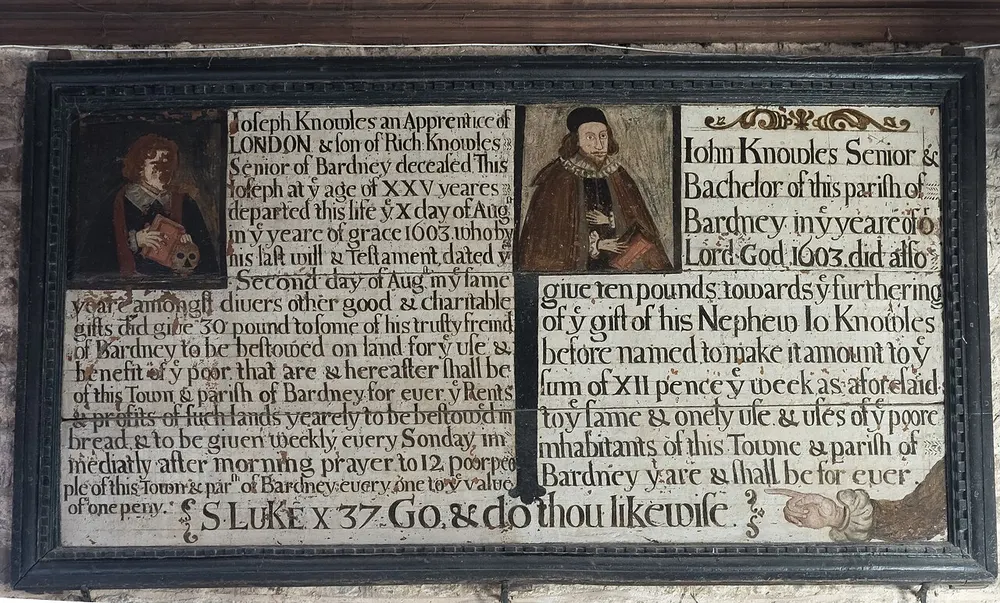 Ioseph Knowles an Apprentice of
LONDON & son of Rich: Knowles
Senior of Bardney deceased This
Ioseph at yͤ age of XXV yeares
departed this life yͤ X day of Augͭ
in yͤ yeare of grace 1603. who by
his last will & Testament, dated yͤ
Second day of Augͭ in yͤ same
yeare amongst diuers other good & charitable
gifts did giue 30 pound to some of his trusty freind
of Bardney to be bestowed on land for yͤ use &
benefit of yͤ poor that are & hereafter shall be
of this Town & parish of Bardney for euer yͤ Rents
& profits of such lands yearely to be bestowed in
bread & to be giuen weekly euery Sonday im
mediatly after morning prayer to 12 poor peo
ple of this Town & parͪ of Bardney euery one to yͤ value
of one peny.
Iohn Knowles Senior &
Bachelor of this parish of
Bardney in yͤ yeare of oͬ
Lord God 1603. did also
giue ten pounds towards yͤ furthering
of yͤ gift of his Nephew Io Knowles
before named to make it amount to yͤ
sum of XII pence yͤ week as aforesaid
to yͤ same & onely use & uses of yͤ poore
inhabitants of this Towne & parish of
Bardney yͭ are & shall be for euer.
S. LUKE X 37. Go, & do thou likewise.